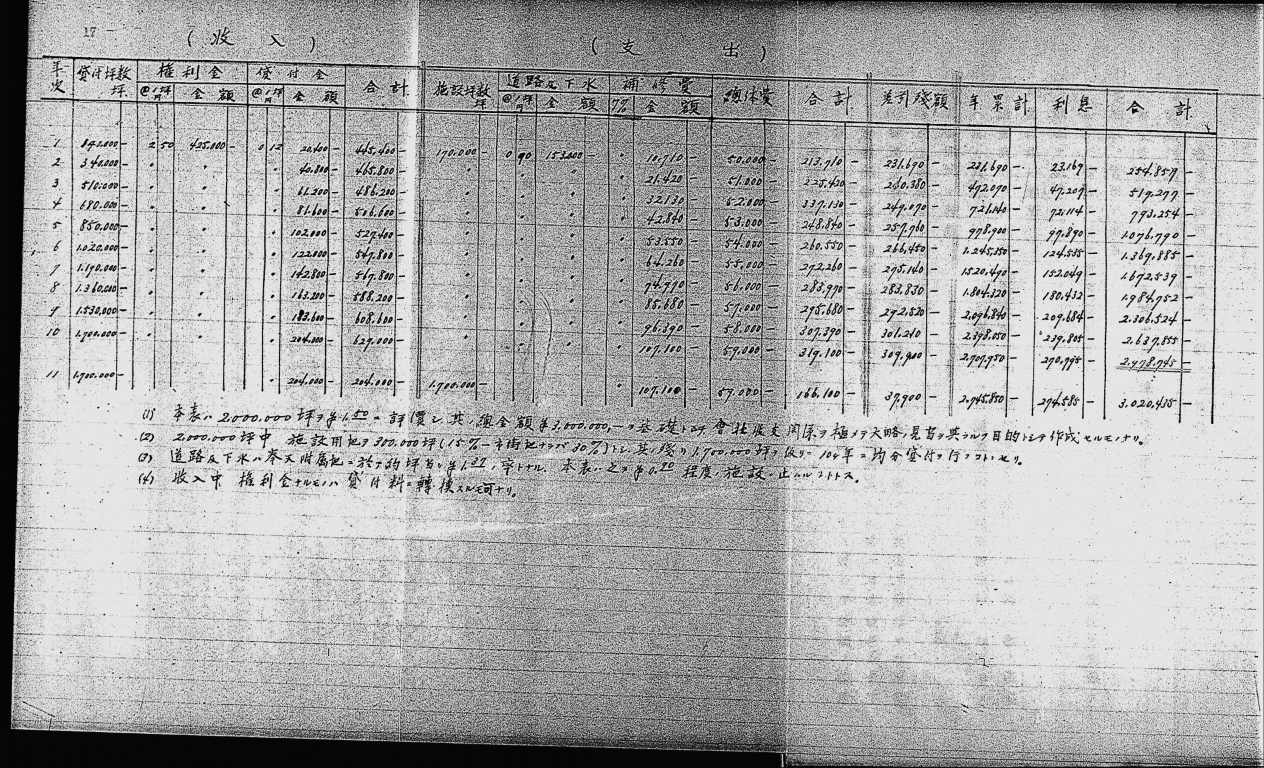 17
(收入) (支出)
年次 貸付坪数 坪 権利金 貸付金 合計 施設坪数 坪 道路及下水 補修費 総体費 合計 差引残額 年累計 利息 合計
@1坪 円 金額 @1坪 円 金額 @1坪 円 金額 7% 金額
1 2 50 425,000- 0 12 20,400- 445,400- 170,000- 0 90 153,000- 〃 10,710- 50,000- 213,710- 231,690- 231,690- 23,169- 254,859-
2 340,000- 〃 〃 〃 40,800- 465,800- 〃 〃 〃 〃 21,420- 51,000- 225,420- 240,380- 472,070- 47,207- 519,277-
3 510,000- 〃 〃 〃 61,200- 486,200- 〃 〃 〃 〃 32,130- 52,000- 237,130- 249,070- 721,140- 72,114- 793,254-
4 680,000- 〃 〃 〃 81,600- 506,600- 〃 〃 〃 〃 42,840- 53,000- 248,840- 257,760- 978,900- 97,890- 1,076,790-
5 850,000- 〃 〃 〃 102,000- 527,400- 〃 〃 〃 〃 53,550- 54,000- 260,550- 266,450- 1,245,350- 124,535- 1,369,885-
6 1,020,000- 〃 〃 〃 122,000- 547,800- 〃 〃 〃 〃 64,260- 55,000- 272,260- 275,140- 1,520,490- 152,049- 1,672,539-
7 1,190,000- 〃 〃 〃 142,800- 567,800- 〃 〃 〃 〃 74,970- 56,000- 283,970- 283,830- 1,804,320- 180,432- 1,984,752-
8 1,360,000- 〃 〃 〃 163,200- 588,200- 〃 〃 〃 〃 85,680- 57,000- 295,680- 292,520- 2,096,840- 209,684- 2,306,524-
9 1,530,000- 〃 〃 〃 183,600- 608,600- 〃 〃 〃 〃 96,390- 58,000- 307,390- 301,210- 2,398,050- 239,805- 2,637,855-
10 1,700,000- 〃 〃 〃 204,000- 629,000- 〃 〃 〃 〃 107,100- 59,000- 319,100- 309,900- 2,707,950- 270,795- 2,978,745-
11 1,700,000- 〃 204,000- 204,000- 1,700,000- 〃 107,100- 59,000- 166,100- 37,900- 2,745,850- 274,585- 3,020,435-
(1) 本表ハ 2,000,000坪ヲ ¥1.50ニ評價シ其ノ総金額¥3,000,000,-ヲ基礎トシテ會社収支関係ヲ極メテ大略ノ見当ヲ共フル目的トシテ作成セルモノナリ。
(2) 2,000,000坪中 施設用地ヲ300,000坪(15%-市街地ナラバ30%)トシ其ノ残リ1,700,000坪ヲ 10ケ年ニ均分貸付ヲ行フコトトセリ。
(3) 道路及下水ハ奉天附属地ニ於テ約坪当 本表ハ之ヲ¥0.90程度ノ施設ニ止ムルコトトス。
(4) 收入中 権利金ナルモノハ貸付料ニ轉換スルモ可ナリ。